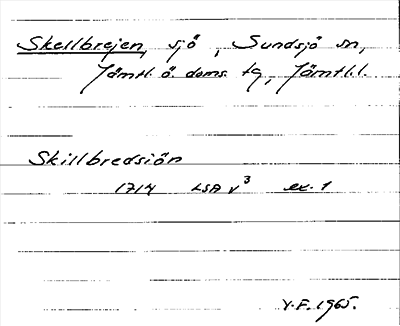 Skellbrejen, sjö, Sundsjö sn,
Jämtl. ö. doms. tg, Jämtl. l.
Skillbredsiön
1714 LSA V³ ex. 1
Y.F. 1965.